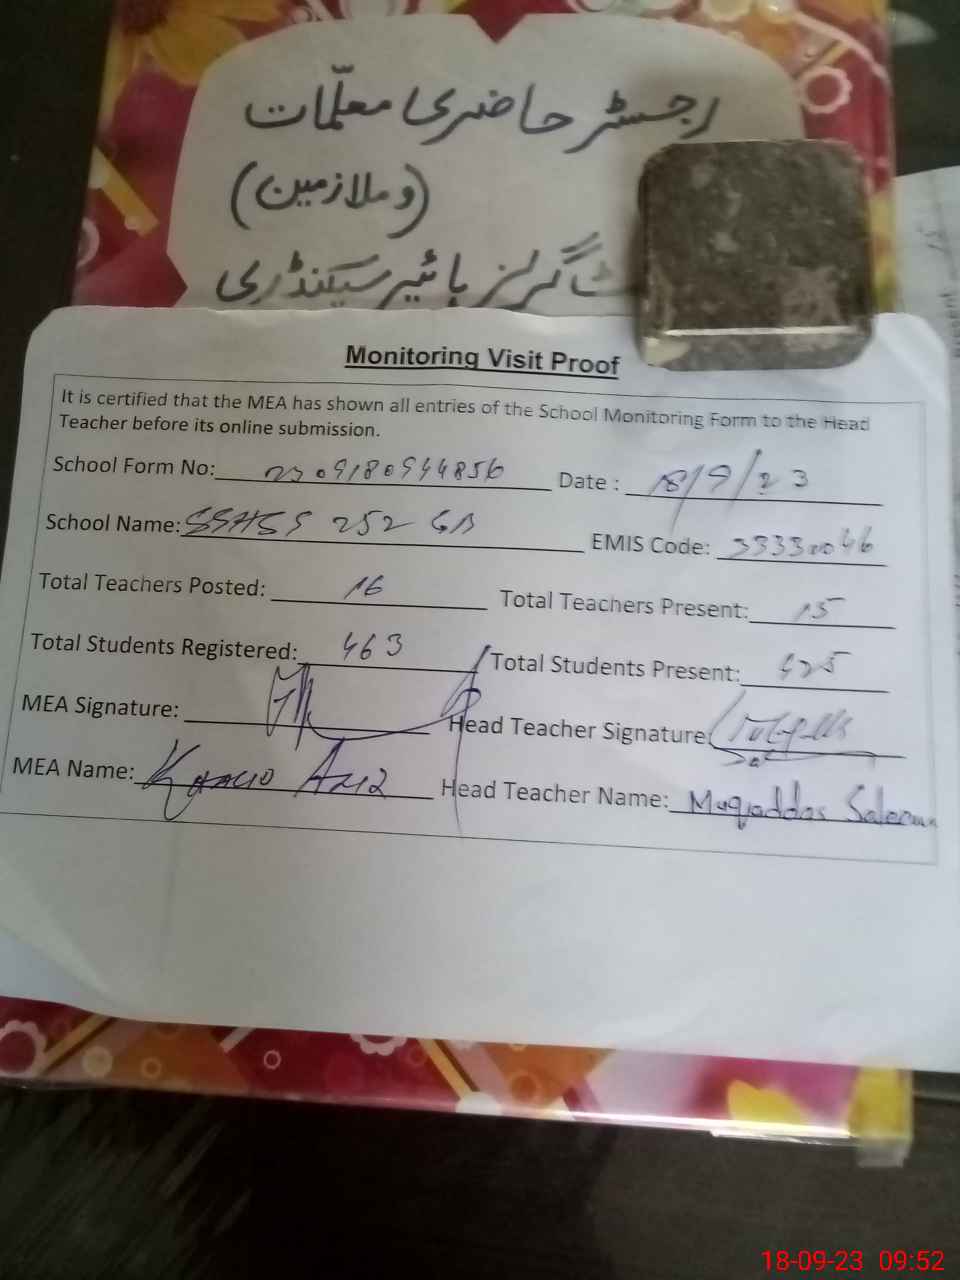 رجسٹر حاضری معلّمات
(و ملازمین)
گرلز ہائیر سیکنڈری
Monitoring Visit Proof
It is certified that the MEA has shown all entries of the School Monitoring Form to the Head
Teacher before its online submission.
School Form No: Date : 18/9/23
School Name: 252 GB
EMIS Code: 33330046
Total Teachers Posted: 16
Total Teachers Present: 15
Total Students Registered: 463
Total Students Present: 425
MEA Signature:
Head Teacher Signature:
MEA Name:
Head Teacher Name: Muqaddas Saleem
18-09-23 09:52